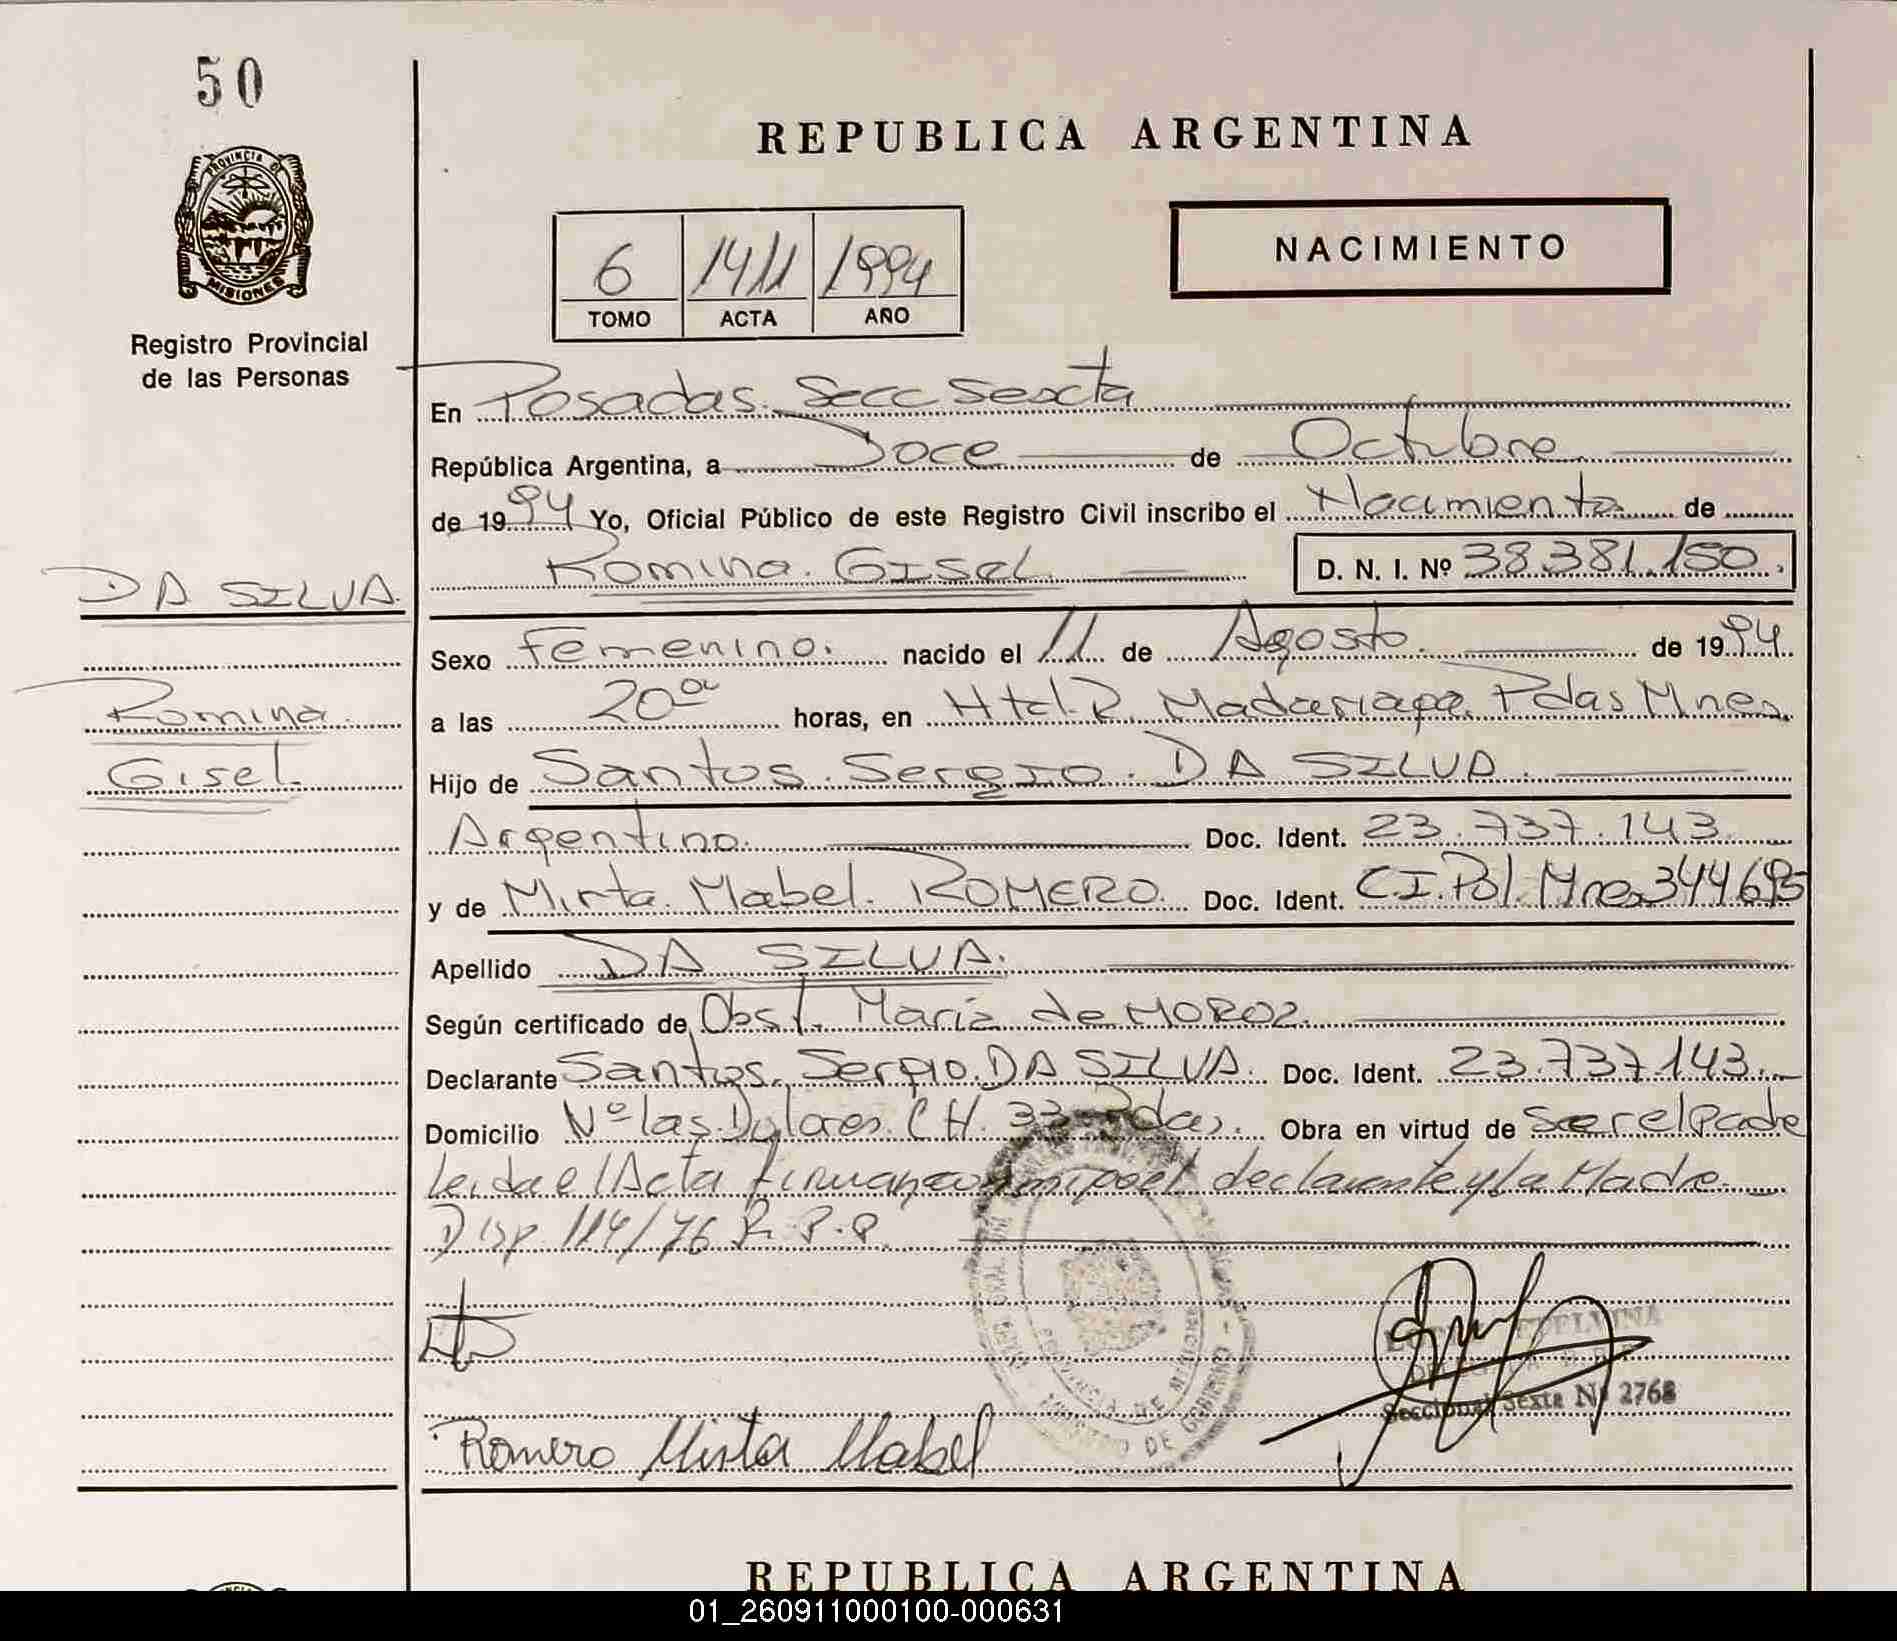 50
REPUBLICA ARGENTINA
PROVINCIA DE
MISIONES
Registro Provincial
de las Personas
6 1411 1994
TOMO ACTA AÑO
NACIMIENTO
En Posadas. Secc Sexta
República Argentina, a Doce de Octubre
de 1994 Yo, Oficial Público de este Registro Civil inscribo el Nacimiento de
Romina. Gisel. D. N. I. Nº 38.381.150.
DA SILVA.
Sexo femenino. nacido el 11 de Agosto. de 1994
Romina
Gisel.
a las 20ª horas, en Htal. R. Madariaga. Pdas Mnes.
Hijo de Santos. Sergio. DA SILVA.
Argentino. Doc. Ident. 23.737.143.
y de Mirta. Mabel. ROMERO. Doc. Ident. C.I. Pol. Mnes 344.695
Apellido DA SILVA.
Según certificado de Obst. María de MOROZ.
Declarante Santos. Sergio. DA SILVA. Doc. Ident. 23.737.143.
Domicilio Nº las Dolores. CH. 33 Pdas. Obra en virtud de ser el Padre
Leida el Acta firman conmigo el declarante y la Madre
Disp. 114/76 R.P.P.
PROVINCIA DE MISIONES
DE GOBIERNO
Seccional Sexta Nº 2768
Romero Mirta Mabel
REPUBLICA ARGENTINA
01_260911000100-000631